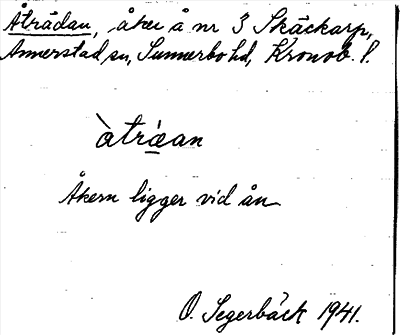 Åträdan, åker å nr 3 Skäckarp,
Annerstad sn, Sunnerbo hd, Kronob. l.
àtrǽan
Åkern ligger vid ån
O. Segerbäck 1941.